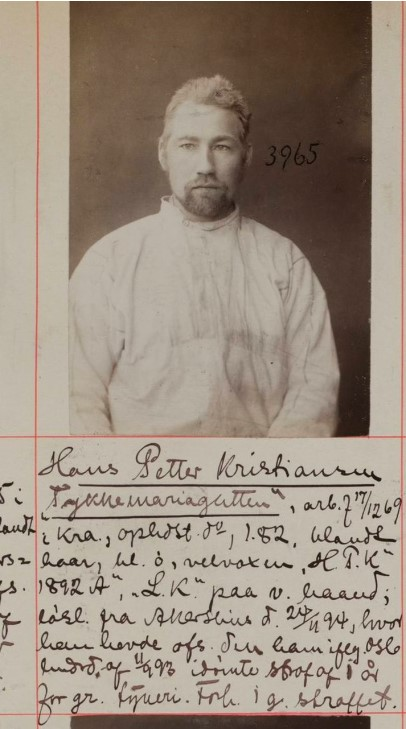 3965
Hans Petter Kristiansen
"Tykkemariagutten", arb. f 17/12 69
i Kra., opholdst. do, 1.82, blondt
haar, bl. ö, velvoxen, "H. P. K
1892 A", "L. K" paa v. haand;
løsl. fra Akershus d. 24/ 94, hvor
han havde afs. den ham ifølg. Oslo
af 93 idømte straf af 1 år
for gr. tyveri. Forh. 1 g. straffet.